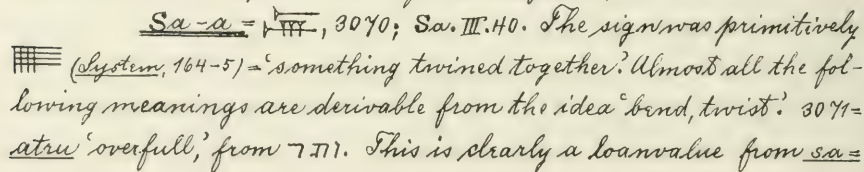 Sa-a = 𒊓, 3070; Sa. III. 40. The sign was primitively
(System, 164-5) = 'something twined together.' Almost all the fol-
lowing meanings are derivable from the idea 'bend, twist.' 3071 =
atru 'overfull,' from יתר. This is clearly a loanvalue from sa =